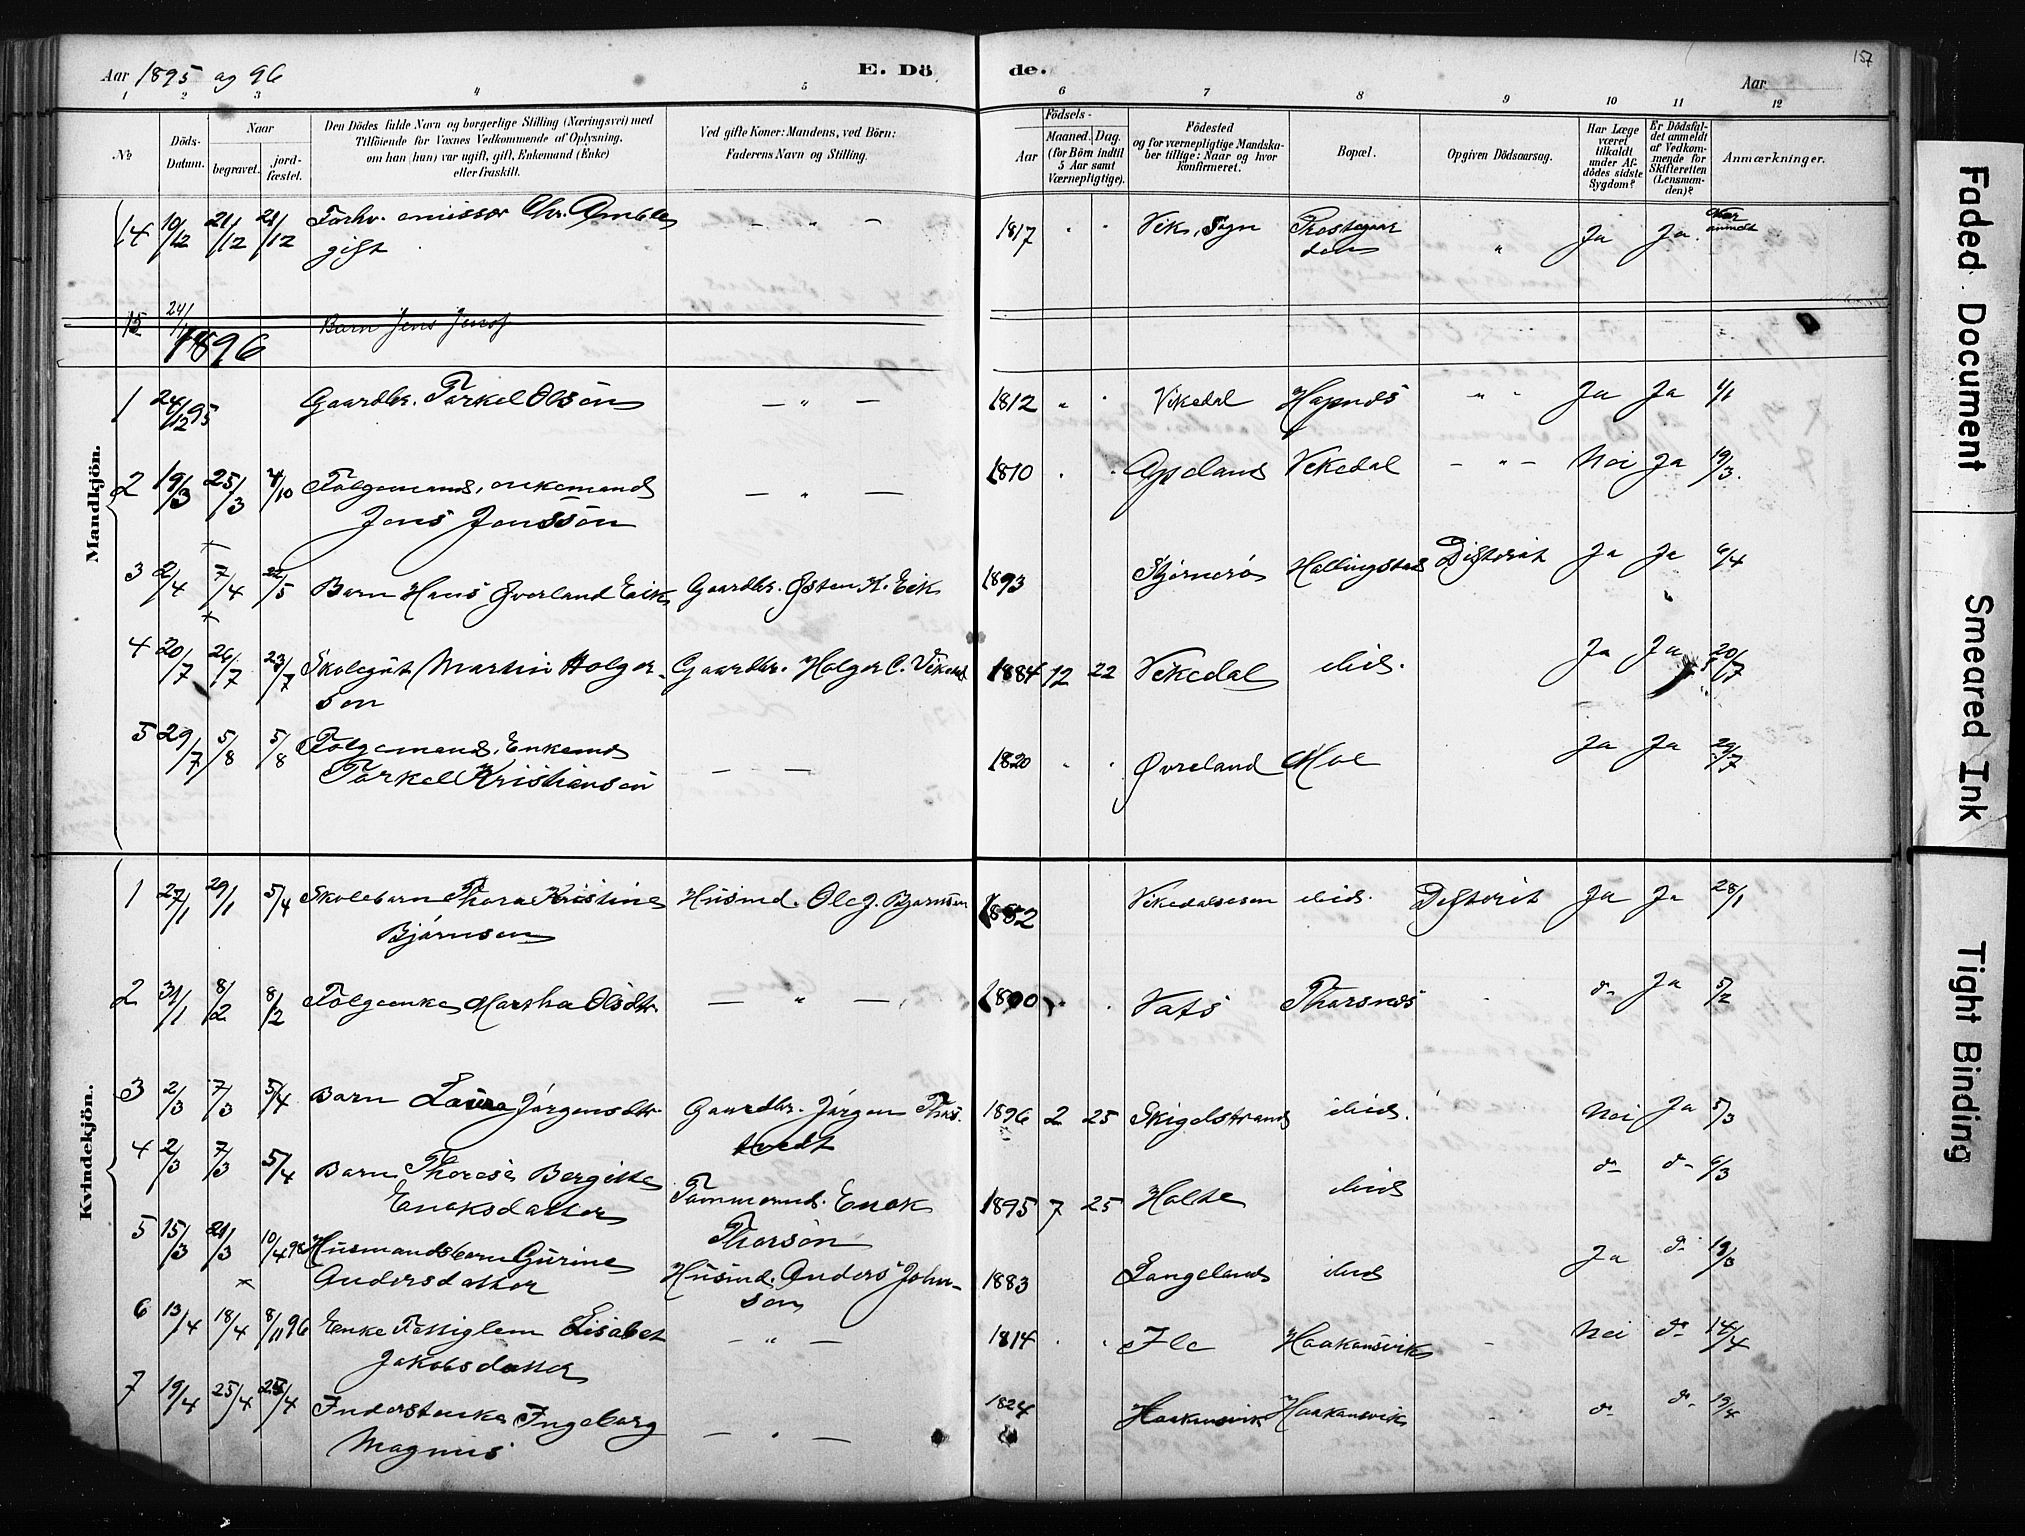 Aar 1895 og 96
E. Dö de.
Aar
157
1 2 3 4 5 6 7 8 9 10 11 12
No
Döds-Datum.
Naar
begravet.
jord-fæstet.
Den Dödes fulde Navn og borgerlige Stilling (Næringsvei) med
Tilföiende for Voxnes Vedkommende af Oplysning,
om han (hun) var ugift, gift, Enkemand (Enke)
eller fraskilt.
Ved gifte Koner: Mandens, ved Börn:
Faderens Navn og Stilling.
Födsels-
Aar
Maaned. Dag.
(for Börn indtil
5 Aar samt
Værnepligtige).
Födested
og for værnepligtige Mandska-
ber tillige: Naar og hvor
konfirmeret.
Bopæl.
Opgiven Dödsaarsag.
Har Læge
været
tilkaldt
under Af-
dödes sidste
Sygdom?
Er Dödsfal-
det anmeldt
af Vedkom-
mende for
Skifteretten
(Lensman-
den)?
Anmærkninger.
Mandkjön.
14 19/12 21/12 21/12 Forhv. emissær Chr. — " — 1817 Vik, Sogn Prestegaar " Ja Ja
gift den
15 24/ Barn Jens Jens
1896
1 24/12 95 Gaardbr. Torkel Olsön — " — 1812 " Vikedal " " Ja Ja
2 19/3 25/3 4/10 Folgemand, enkemand — " — 1810 Vikedal — " — Nei Ja 19/3.
Jens Jenssön
3 2/4 7/4 22/5 Barn Hans Øverland Eik Gaardbr. Østen H. Eik 1893 Stjernerö Hallingstad Difterit Ja Ja 6/4
4 20/7 26/7 23/7 Skolegut Martin Holger- Gaardbr. Holger C. Vikedal 1884 12 22 Vikedal ibid. Ja Ja 20/7
son
5 29/7 5/8 5/8 Folgemand, Enkemd — — 1820 Øvreland Moe Ja Ja 29/7
Torkel Kristiansön
Kvindekjön.
1 27/1 29/1 5/4 Skolebarn Thora Kristine Husmd. Ole J. Bjørnsen 1882 Vikedalsøen ibid. Difterit Ja Ja 28/1
Bjørnsen
2 31/1 8/2 8/2 Folgeenke Martha Olsdtr — " — 1800 Vats Thorsnes d- Ja 5/2
3 2/3 7/3 5/4 Barn Laura Jørgensdtr Gaardbr. Jørgen 1896 2 25 Skigelstrand ibid. Nei Ja 5/3
tvedt
4 2/3 7/3 5/4 Barn Therese Bergitte Tømmermd. Enok 1895 7 25 Holte ibid d- d- 6/3
Enoksdatter Thorsön
5 15/3 21/3 10/4 96 Husmandsbarn Gurine Husmd. Anders John- 1883 Langeland ibid Ja d- 19/3
Andersdatter sön
6 13/4 18/4 8/11 96 Enke Fattiglem Lisabet — " — 1814 Ile Haakansvik Nei d- 14/4
Jakobsdatter
7 19/4 25/4 25/4 Inderstenke Ingeborg — " — 1824 Haakansvik Haakansvik d- d- 19/4
Magnus
Faded Document
Smeared Ink
Tight Binding